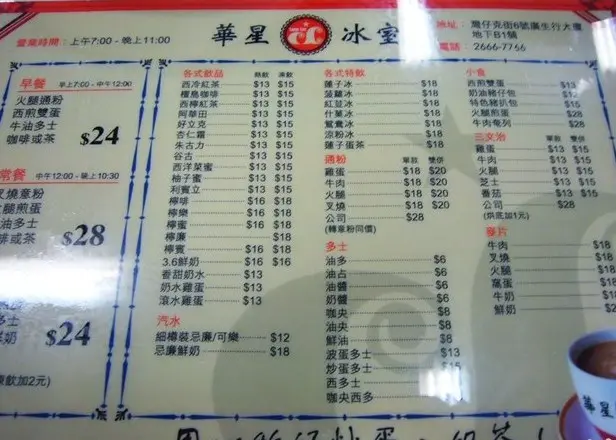 營業時間：上午7:00 - 晚上11:00
華星冰室
地址：灣仔克街6號廣生行大廈
地下B1舖
電話：2666-7766
早餐 早上7:00 - 中午12:00
火腿通粉
西煎雙蛋
牛油多士
咖啡或茶 $24
常餐 中午12:00 - 晚上10:30
叉燒意粉
火腿煎蛋
油多士
啡或茶
$28
多士
鮮奶
$24
飲加2元)
各式飲品 熱飲 凍飲
西冷紅茶 $13 $15
檀島咖啡 $13 $15
西檸紅茶 $13 $15
阿華田 $13 $15
好立克 $13 $15
杏仁霜 $13 $15
朱古力 $13 $15
谷古 $13 $15
西洋菜蜜 $13 $15
柚子蜜 $13 $15
利賓立 $13 $15
檸啡 $16 $18
檸樂 $16 $18
檸蜜 $16 $18
檸廉 $18
檸賓 $16 $18
3.6鮮奶 $16 $16
香甜奶水 $13
奶水雞蛋 $13
滾水雞蛋 $13
汽水
細樽裝忌廉/可樂 $12
忌廉鮮奶 $18
各式特飲
蓮子冰 $18
菠蘿冰 $18
紅荳冰 $18
什菓冰 $18
鴛鴦冰 $18
涼粉冰 $18
蓮子蛋茶 $18
通粉 單款 雙併
雞蛋 $18 $20
牛肉 $18 $20
火腿 $18 $20
叉燒 $18 $20
公司 $28
(轉意粉同價)
多士
油多 $6
油占 $6
油醬 $6
奶醬 $6
咖央 $8
油央 $8
鮮油 $8
波蛋多士 $13
炒蛋多士 $15
西多士
咖央西多
小食
西煎雙蛋 $13
奶油豬仔包 $12
特色豬扒包 $15
火腿煎蛋 $28
牛肉奄列 $28
三文治 單款 雙併
雞蛋 $13 $15
牛肉 $13 $15
火腿 $13 $15
芝士 $13 $15
番茄 $13 $15
公司 $28
(烘底加1元)
麥片
牛肉 $18
叉燒 $18
火腿 $18
窩蛋 $18
牛奶
鮮奶
華星